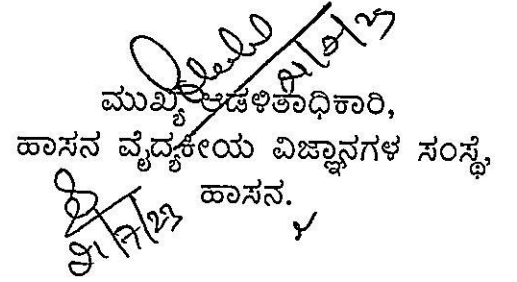 ಮುಖ್ಯ ಆಡಳಿತಾಧಿಕಾರಿ,
ಹಾಸನ ವೈದ್ಯಕೀಯ ವಿಜ್ಞಾನಗಳ ಸಂಸ್ಥೆ,
ಹಾಸನ.